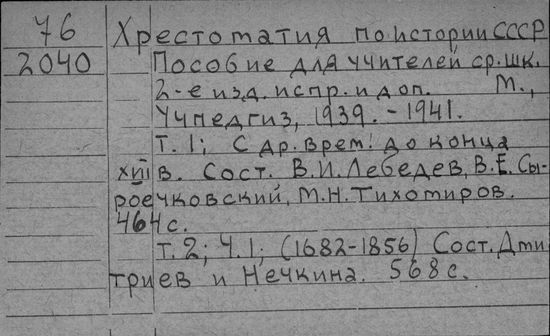 76 Хрестоматия по истории СССР
2040 Пособие для учителей ср. шк.
2-е изд. испр. и доп. М.,
Учпедгиз, 1939. - 1941.
Т. 1; С др. врем. до конца
XVII в. Сост. В. И. Лебедев, В. Е. Сы-
роечковский, М. Н. Тихомиров.
464 с.
т. 2; Ч. 1; (1682-1856) Сост. Дми
триев и Нечкина. 568 с.